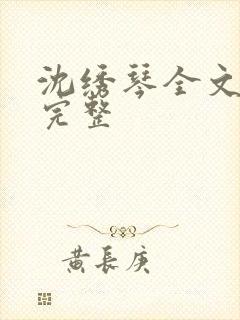 沈绣琴全文
完整
黄长庚